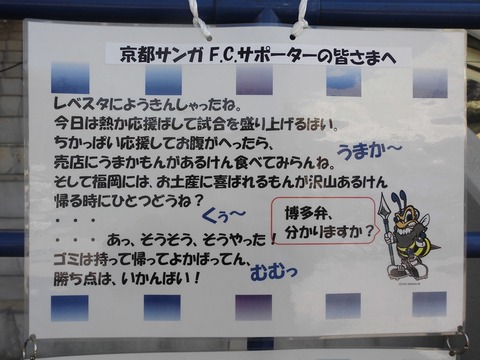 京都サンガ F.C.サポーターの皆さまへ
レベスタにようきんしゃったね。
今日は熱か応援ばして試合を盛り上げるばい。
ちかっぱい応援してお腹がへったら、
売店にうまかもんがあるけん食べてみらんね。
うまか～
そして福岡には、お土産に喜ばれるもんが沢山あるけん
帰る時にひとつどうね？
・・・
くぅ～
・・・ あっ、そうそう、そうやった！
博多弁、
分かりますか？
ゴミは持って帰ってよかばってん、
勝ち点は、いかんばい！
むむっ